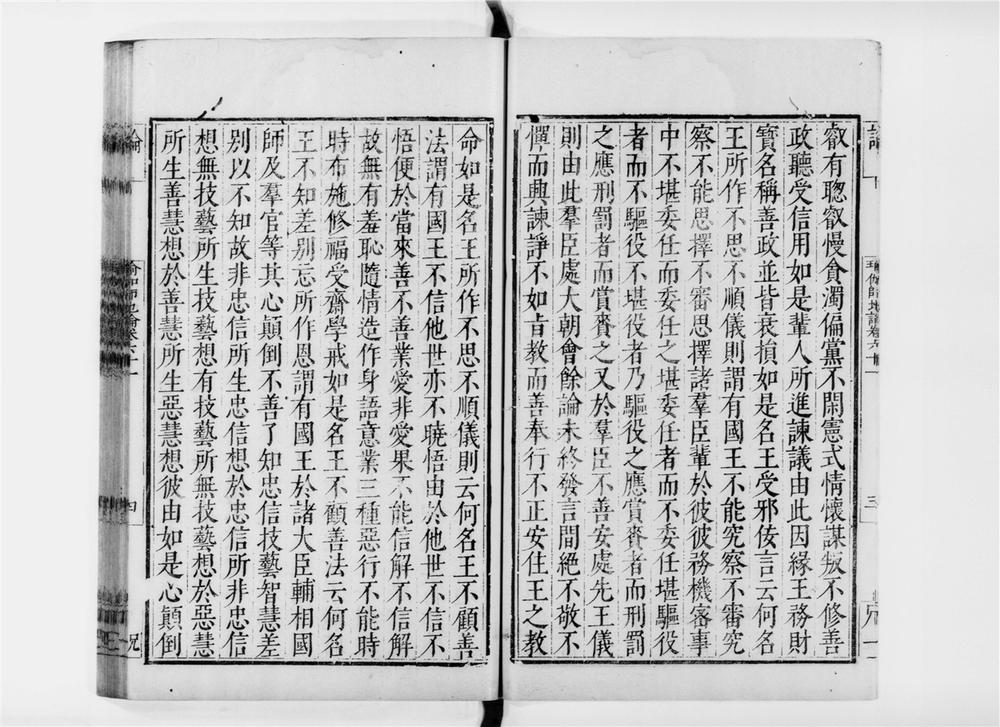 叡有聰叡慢貪濁偏黨不閑憲式情懷謀叛不修善
政聽受信用如是輩人所進諫議由此因緣王務財
寶名稱善政並皆衰損如是名王受邪佞言云何名
王所作不思不順儀則謂有國王不能究察不審究
察不能思擇不審思擇諸羣臣輩於彼彼務機密事
中不堪委任而委任之堪委任者而不委任堪驅役
者而不驅役不堪役者乃驅役之應賞賚者而刑罰
之應刑罰者而賞賚之又於羣臣不善安處先王儀
則由此羣臣處大朝會餘論未終發言間絕不敬不
憚而興諫諍不如肯教而善奉行不正安住王之教
命如是名王所作不思不順儀則云何名王不顧善
法謂有國王不信他世亦不曉悟由於他世不信不
悟便於當來善不善業愛非愛果不能信解不信解
故無有羞恥隨情造作身語意業三種惡行不能時
時布施修福受齋學戒如是名王不顧善法云何名
王不知差別忘所作恩謂有國王於諸大臣輔相國
師及羣官等其心顛倒不善了知忠信技藝智慧差
別以不知故非忠信所生忠信想於忠信所非忠信
想無技藝所生技藝想有技藝所無技藝想於惡慧
所生善慧想於善慧所生惡慧想彼由如是心顛倒